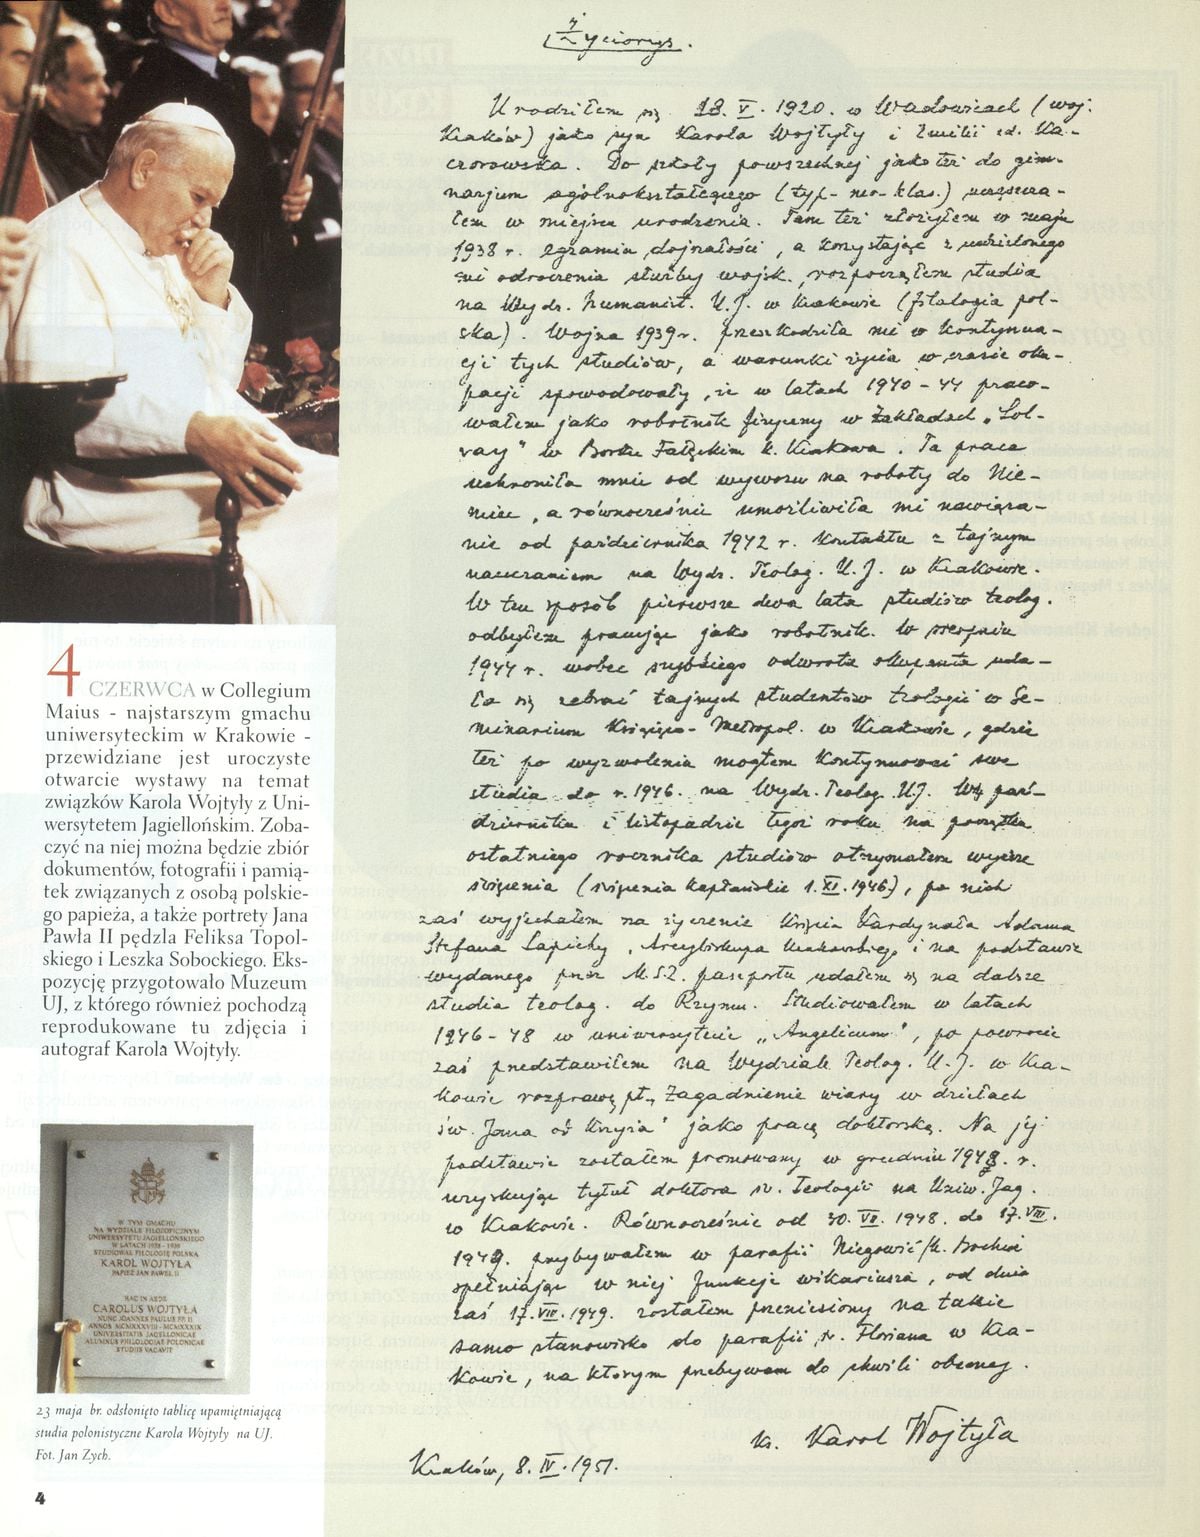 Życiorys.
Urodziłem się 18. V. 1920. w Wadowicach (woj.
Kraków) jako syn Karola Wojtyły i Emilii z d. Ka-
czorowska. Do szkoły powszechnej jako też do gim-
nazjum ogólnokształcącego (typ - neo-klas.) uczęszcza-
łem w miejscu urodzenia. Tam też złożyłem w maju
1938 r. egzamin dojrzałości, a korzystając z udzielonego
mi odroczenia służby wojsk., rozpocząłem studia
na Wydz. humanist. U.J. w Krakowie (filologia pol-
ska). Wojna 1939 r. przeszkodziła mi w kontynua-
cji tych studiów, a warunki życia w czasie oku-
pacji spowodowały, że w latach 1940-44 praco-
wałem jako robotnik fizyczny w Zakładach „Sol-
vay" w Borku Fałęckim k. Krakowa. Ta praca
uchroniła mnie od wywozu na roboty do Nie-
miec, a równocześnie umożliwiła mi nawiąza-
nie od października 1942 r. kontaktu z tajnym
nauczaniem na Wydz. Teolog. U.J. w Krakowie.
W ten sposób pierwsze dwa lata studiów teolog.
odbyłem pracując jako robotnik. W sierpniu
1944 r. wobec szybkiego odwrotu okupanta uda-
ło się zebrać tajnych studentów teologii w Se-
minarium Książęco-Metropol. w Krakowie, gdzie
też po wyzwoleniu mogłem kontynuować swe
studia do r. 1946. na Wydz. Teolog. U.J. W paź-
dzierniku i listopadzie tegoż roku na początku
ostatniego rocznika studiów otrzymałem wyższe
święcenia (święcenia kapłańskie 1. XI. 1946.), po nich
zaś wyjechałem na życzenie Księcia Kardynała Adama
Stefana Sapiehy, Arcybiskupa Krakowskiego i na podstawie
wydanego przez M.S.Z. paszportu udałem się na dalsze
studia teolog. do Rzymu. Studiowałem w latach
1946-48 w uniwersytecie „Angelicum", po powrocie
zaś przedstawiłem na Wydziale Teolog. U.J. w Kra-
kowie rozprawę pt. „Zagadnienie wiary w dziełach
św. Jana od Krzyża" jako pracę doktorską. Na jej
podstawie zostałem promowany w grudniu 1948. r.
uzyskując tytuł doktora św. Teologii na Uniw. Jag.
w Krakowie. Równocześnie od 30. VII. 1948. do 17. VIII.
1949. przebywałem w parafii Niegowić /k. Bochni
spełniając w niej funkcje wikariusza, od dnia
zaś 17. VIII. 1949. zostałem przeniesiony na takie
samo stanowisko do parafii św. Floriana w Kra-
kowie, na którym przebywam do chwili obecnej.
ks. Karol Wojtyła
Kraków, 8. IV. 1951.
4 CZERWCA w Collegium
Maius - najstarszym gmachu
uniwersyteckim w Krakowie -
przewidziane jest uroczyste
otwarcie wystawy na temat
związków Karola Wojtyły z Uni-
wersytetem Jagiellońskim. Zoba-
czyć na niej można będzie zbiór
dokumentów, fotografii i pamią-
tek związanych z osobą polskie-
go papieża, a także portrety Jana
Pawła II pędzla Feliksa Topol-
skiego i Leszka Sobockiego. Eks-
pozycję przygotowało Muzeum
UJ, z którego również pochodzą
reprodukowane tu zdjęcia i
autograf Karola Wojtyły.
W TYM GMACHU
NA WYDZIALE FILOZOFICZNYM
UNIWERSYTETU JAGIELLOŃSKIEGO
W LATACH 1938 - 1939
STUDIOWAŁ FILOLOGIĘ POLSKĄ
KAROL WOJTYŁA
PAPIEŻ JAN PAWEŁ II
HAC IN AEDE
CAROLUS WOJTYŁA
NUNC JOANNES PAULUS PP. II
ANNOS MCMXXXVIII - MCMXXXIX
UNIVERSITATIS JAGELLONICAE
ALUMNUS PHILOLOGIAE POLONICAE
STUDIIS VACAVIT
23 maja br. odsłonięto tablicę upamiętniającą
studia polonistyczne Karola Wojtyły na UJ.
Fot. Jan Zych.
4